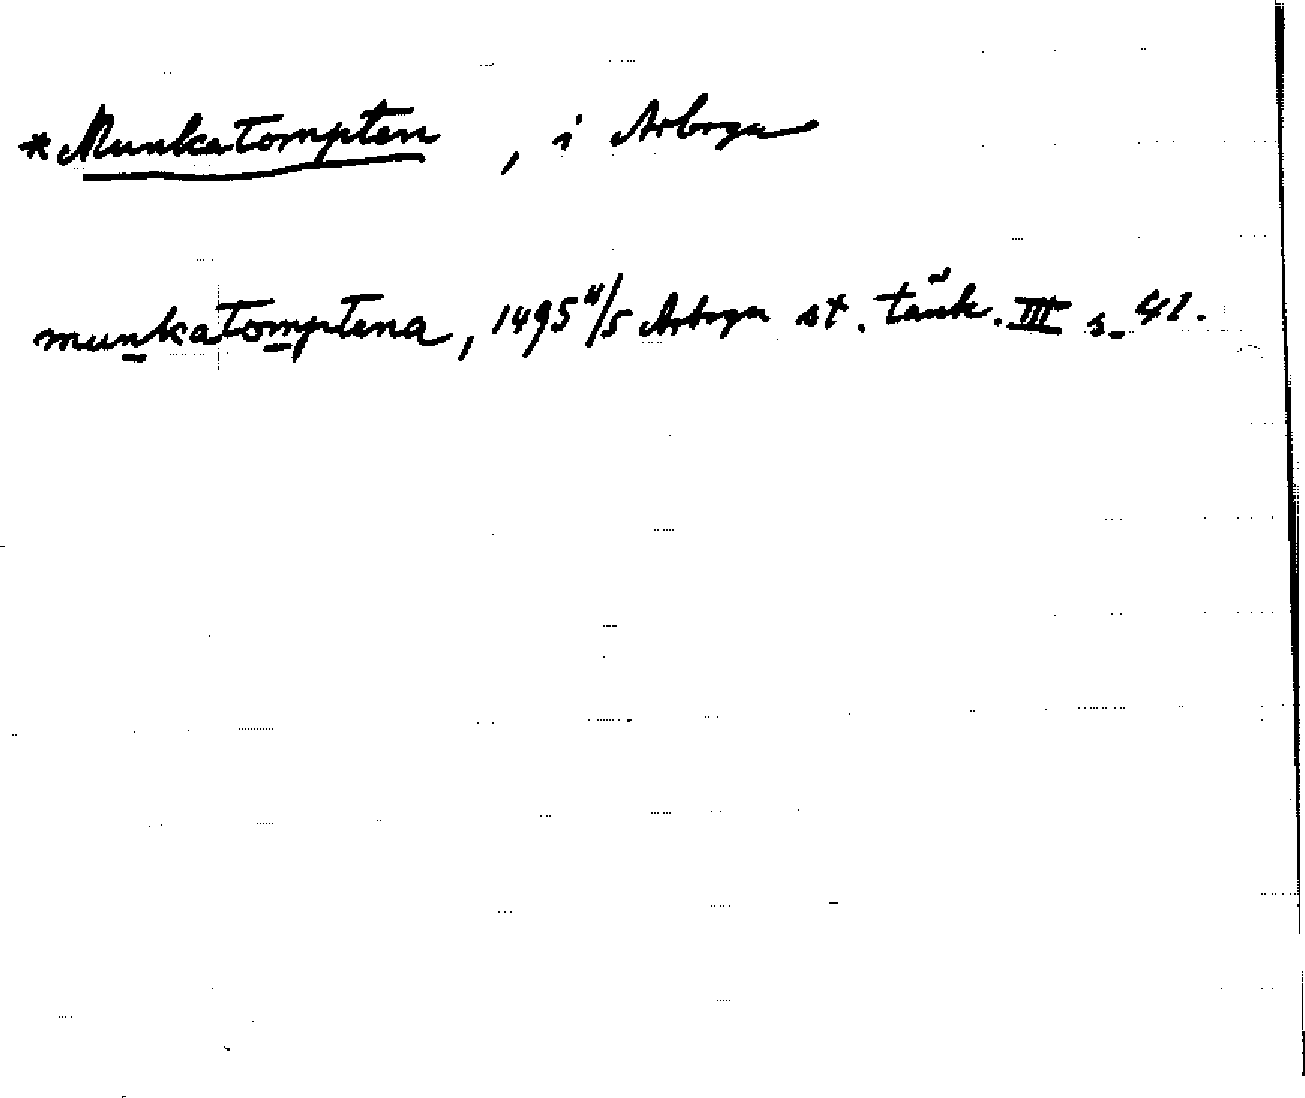 *Munkatompten , i Arboga
munkatomptena, 1495 4/5 Arboga st. tänk. III s. 41.